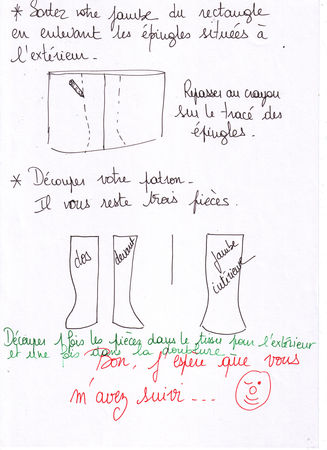 * Sortez votre jambe du rectangle
en enlevant les épingles situées à
l'extérieur.
Repasser au crayon
sur le tracé des
épingles.
* Découper votre patron.
Il vous reste trois pièces.
dos
devant
jambe
intérieure
Découper 1 fois les pièces dans le tissu pour l'extérieur
et une fois dans la doublure
Bon, j'espère que vous
m'avez suivi...